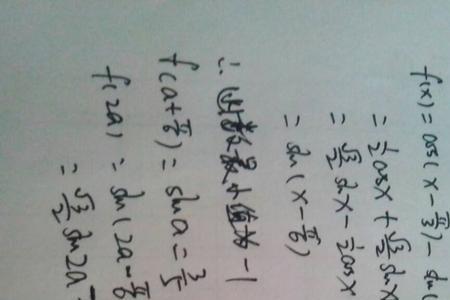 f(x)=cos(x-π/3)-sin
=1/2cosx+√3/2sinx
=√3/2sinx-1/2cosx
=sin(x-π/6)
∴函数最小值为-1
f(a+π/6)=sina=3/5
f(2a)=sin(2a-π/6
=√3/2sin2a-